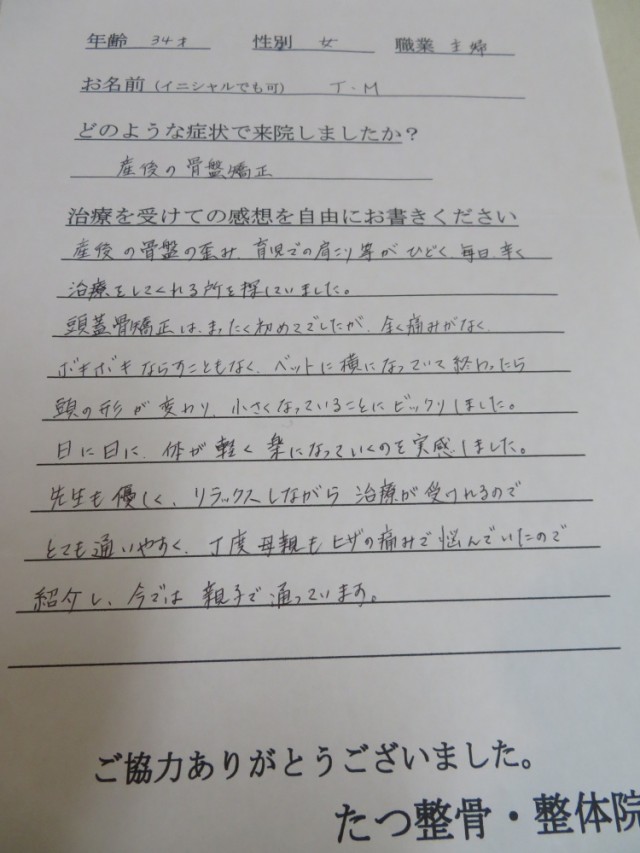 年齢 34才 性別 女 職業 主婦
お名前(イニシャルでも可) T・M
どのような症状で来院しましたか?
産後の骨盤矯正
治療を受けての感想を自由にお書きください
産後の骨盤の歪み、育児での肩こり等がひどく、毎日、辛く
治療をしてくれる所を探していました。
頭蓋骨矯正は、まったく初めてでしたが、全く痛みがなく、
ボキボキならすこともなく、ベットに横になっていて終わったら
頭の形が変わり、小さくなっていることにビックリしました。
日に日に、体が軽く楽になっていくのを実感しました。
先生も優しく、リラックスしながら治療が受けれるので
とても通いやすく、丁度母親もヒザの痛みで悩んでいたので
紹介し、今では親子で通っています。
ご協力ありがとうございました。
たつ整骨・整体院